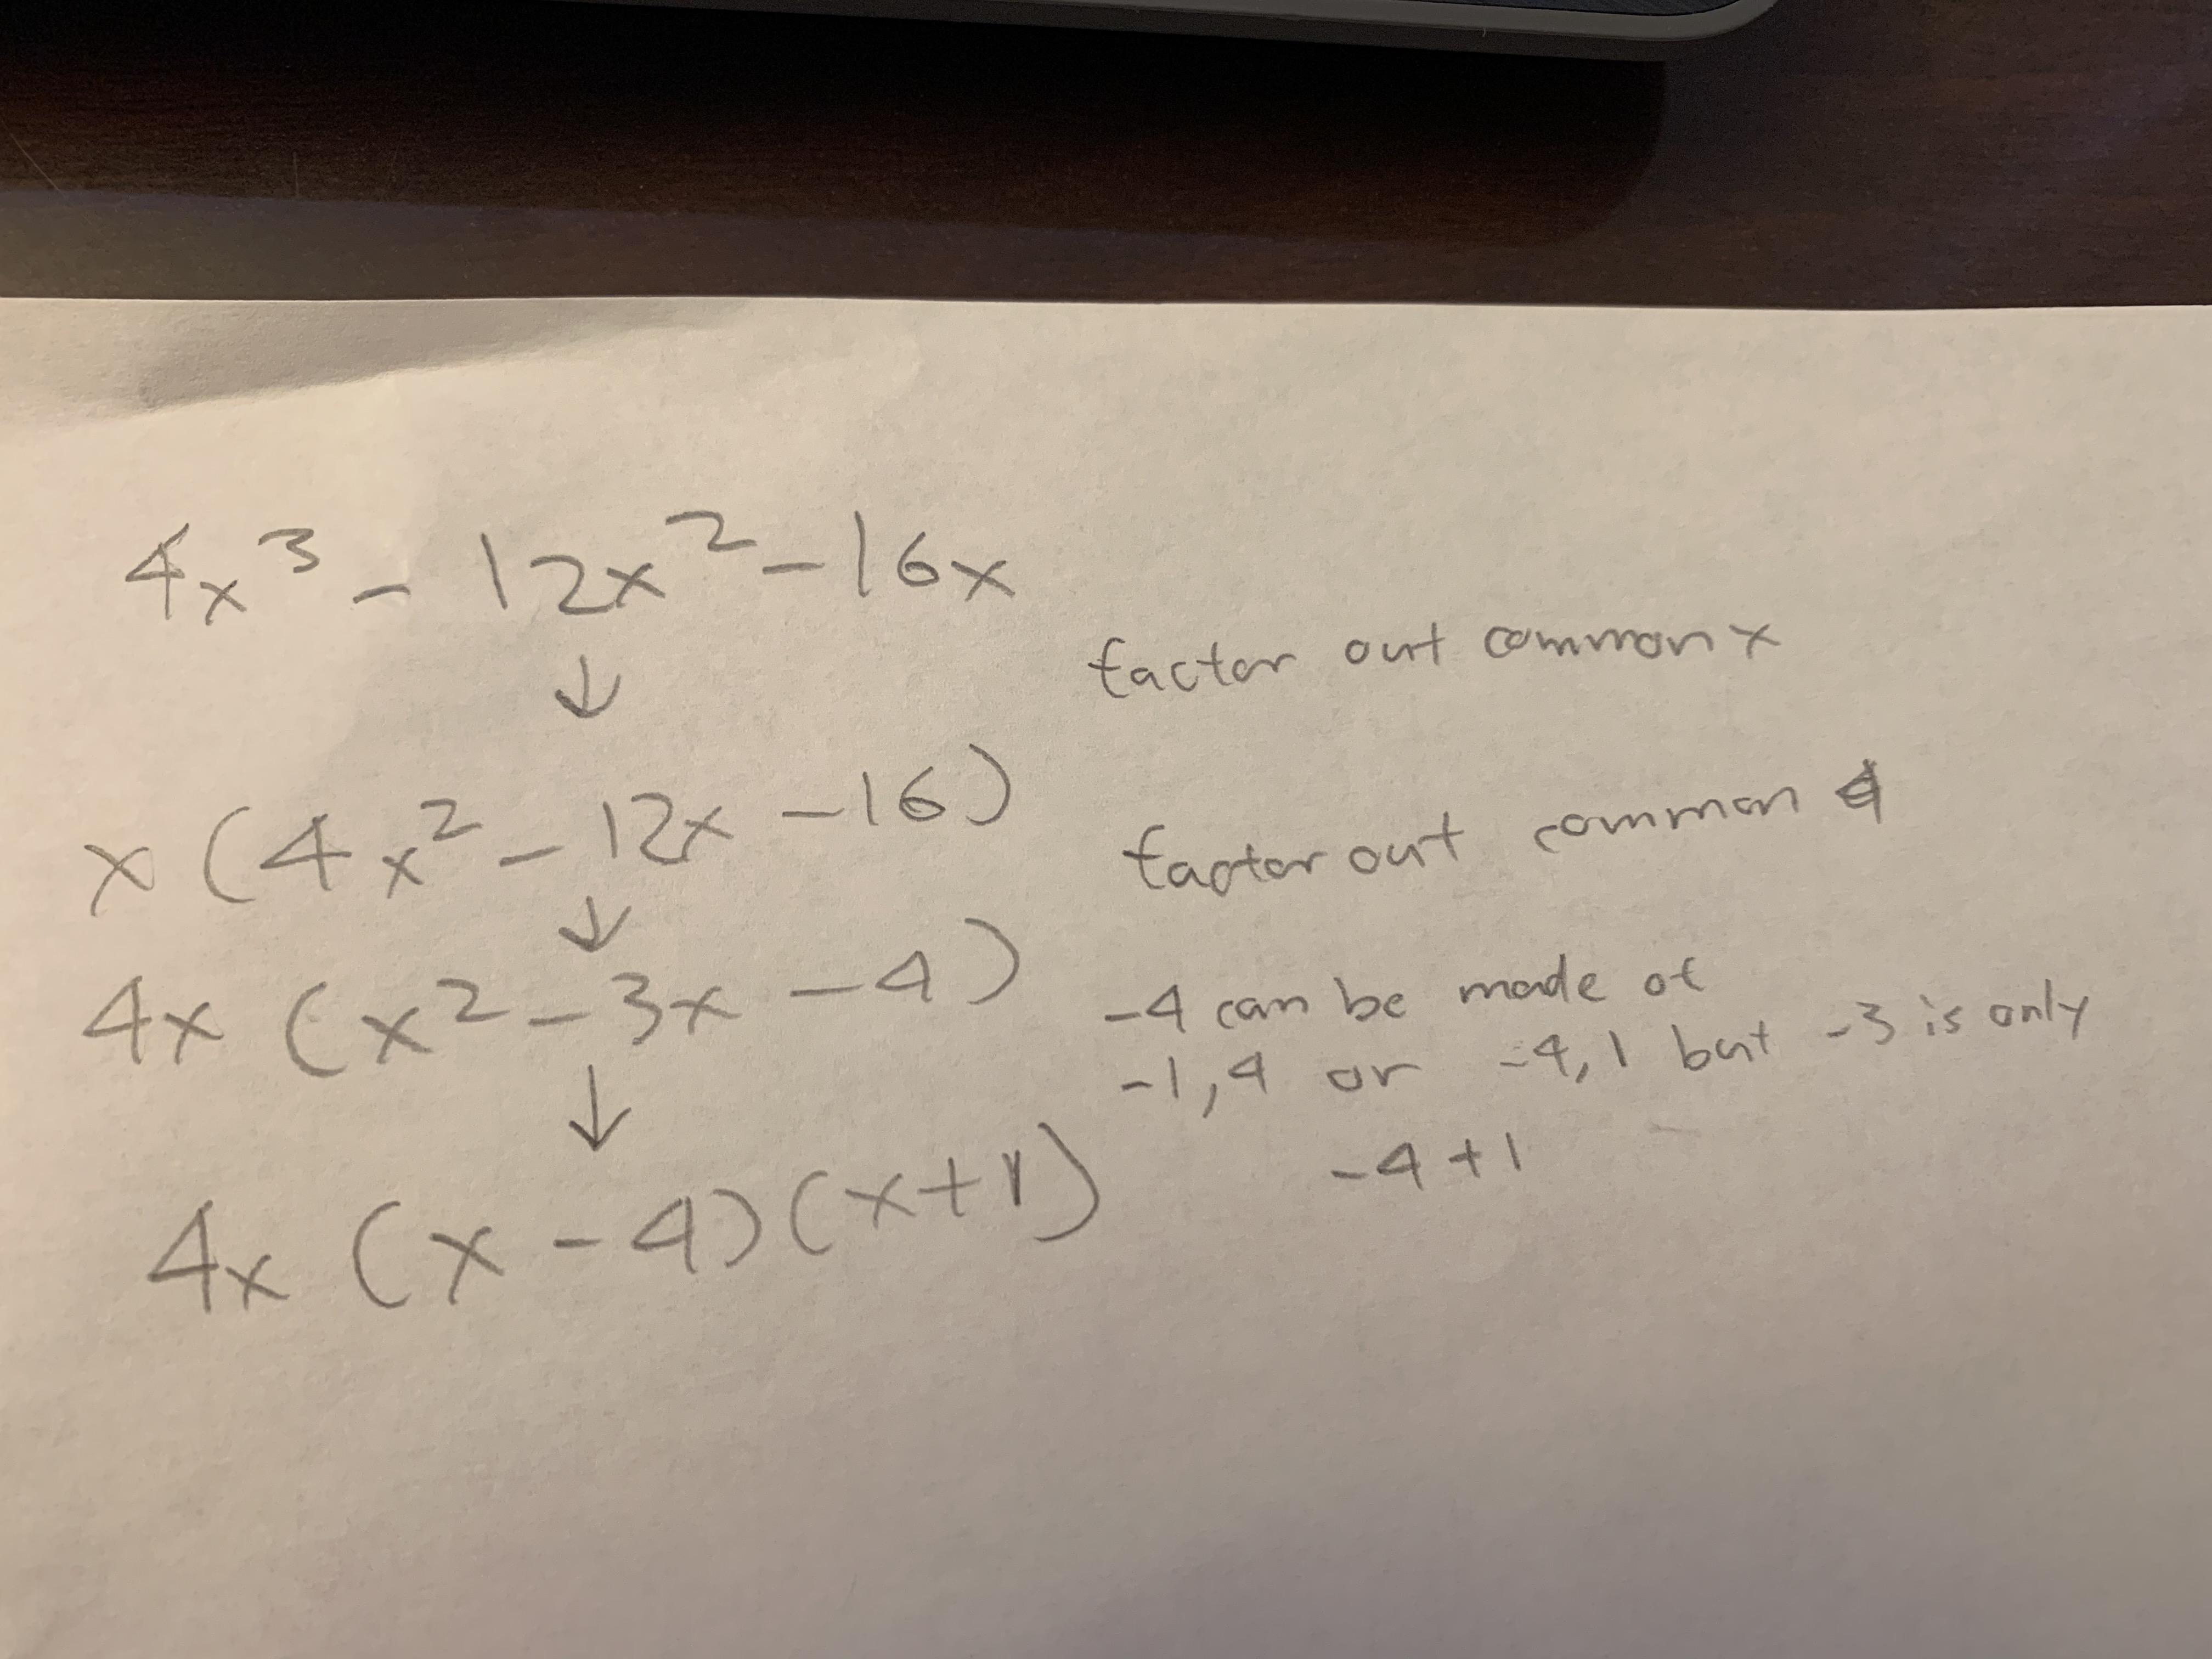 4x³ - 12x² - 16x
↓ factor out common x
x(4x² - 12x - 16)
↓ factor out common 4
4x(x² - 3x - 4) -4 can be made of
-1, 4 or -4, 1 but -3 is only
↓ -4 + 1
4x(x - 4)(x + 1)